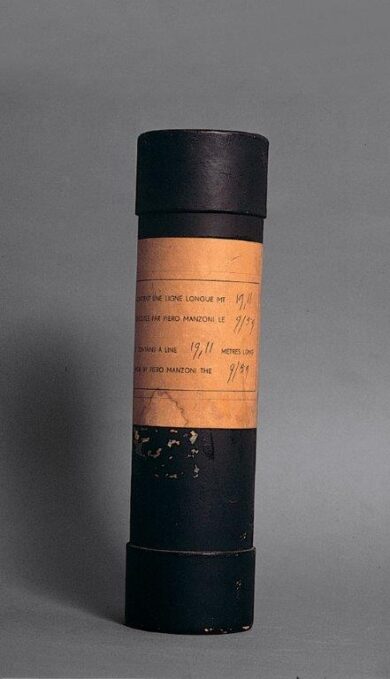 CONTIENT UNE LIGNE LONGUE MT 19,11
PAR PIERO MANZONI LE 9/59
CONTAINS A LINE 19,11 METRES LONG
BY PIERO MANZONI THE 9/59